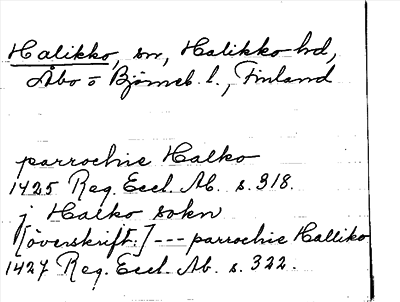 Halikko, sn, Halikko hd,
Åbo o Björneb. l., Finland
parrochie Halko
1425 Reg. Eccl. Ab. s. 318.
j Halko sokn
[överskift:] --- parrochie Halliko
1427 Reg. Eccl. Ab. s. 322.